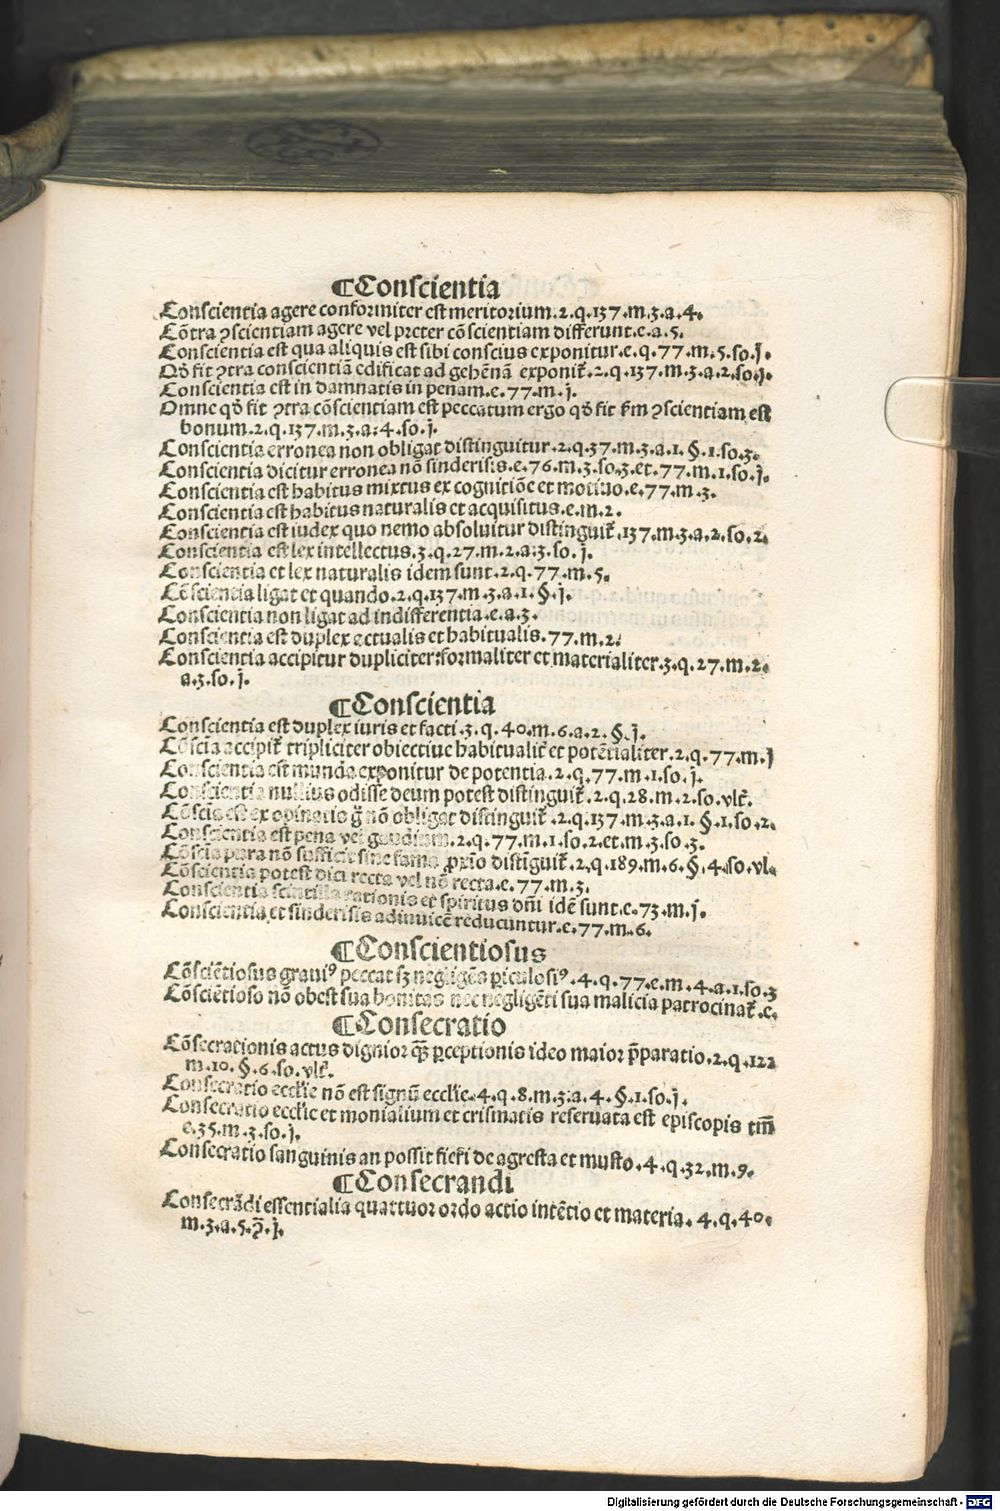 ¶Conscientia
Conscientia agere conformiter est meritorium.2.q.137.m.3.a.4.
Cõtra ꝯscientiam agere vel preter cõscientiam differunt.e.a.5.
Conscientia est qua aliquis est sibi conscius exponitur.e.q.77.m.5.so.j.
Qđ fit ꝯtra conscientiã edificat ad gehẽnã exponit᷑.2.q.137.m.3.a.2.so.j.
Conscientia est in damnatis in penam.e.77.m.j.
Omne qđ fit ꝯtra cõscientiam est peccatum ergo qđ fit ẜm ꝯscientiam est
bonum.2.q.137.m.3.a.4.so.j.
Conscientia erronea non obligat distinguitur.2.q.37.m.3.a.1.§.1.so.3.
Conscientia dicitur erronea nõ sinderisis.e.76.m.3.so.3.et.77.m.1.so.j.
Conscientia est habitus mixtus ex cognitiõe et motiuo.e.77.m.3.
Conscientia est habitus naturalis et acquisitus.e.m.2.
Conscientia est iudex quo nemo absoluitur distinguit᷑.137.m.3.a.2.so.2.
Conscientia est lex intellectus.3.q.27.m.2.a.3.so.j.
Conscientia et lex naturalis idem sunt.2.q.77.m.5.
Cõscientia ligat et quando.2.q.137.m.3.a.1.§.j.
Conscientia non ligat ad indifferentia.e.a.3.
Conscientia est duplex actualis et habitualis.77.m.2.
Conscientia accipitur dupliciter:formaliter et materialiter.3.q.27.m.2.
a.3.so.j.
¶Conscientia
Conscientia est duplex iuris et facti.3.q.40.m.6.a.2.§.j.
Cõscia accipit᷑ tripliciter obiectiue habitualit᷑ et potẽtialiter.2.q.77.m.j
Conscientia est munda exponitur de potentia.2.q.77.m.1.so.j.
Conscientia nullius odisse deum potest distinguit᷑.2.q.28.m.2.so.vlt᷑.
Cõscia est ex opinatio g̃ nõ obligat distinguit᷑.2.q.137.m.3.a.1.§.1.so.2.
Conscientia est pena vel gaudium.2.q.77.m.1.so.2.et.m.3.so.3.
Cõscia pura nõ sufficit sine fama ꝓxĩo distĩguit᷑.2.q.189.m.6.§.4.so.vl.
Cõscientia potest dici recta vel nõ recta.e.77.m.3.
Conscientia scintilla rationis et spiritus dñi idẽ sunt.e.73.m.j.
Conscientia et sinderisis adinuicẽ reducuntur.e.77.m.6.
¶Conscientiosus
Cõsciẽtiosus grauiꝰ peccat sꝫ negligẽs ꝑiculosiꝰ.4.q.77.e.m.4.a.1.so.3
Cõsciẽtioso nõ obest sua bonitas nec negligẽti sua malicia patrocinat᷑.e.
¶Consecratio
Cõsecrationis actus dignior q̃ꝫ ꝑceptionis ideo maior p̃paratio.2.q.122
m.10.§.6.so.vlt᷑.
Consecratio ecclie nõ est signũ ecclie.4.q.8.m.3.a.4.§.1.so.j.
Consecratio ecclie et monialium et crismatis reseruata est episcopis tm̃
e.35.m.3.so.j.
Consecratio sanguinis an possit fieri de agresta et musto.4.q.32.m.9.
¶Consecrandi
Consecrãdi essentialia quattuor ordo actio intẽtio et materia.4.q.40.
m.3.a.5.p̃.j.
Digitalisierung gefördert durch die Deutsche Forschungsgemeinschaft - DFG